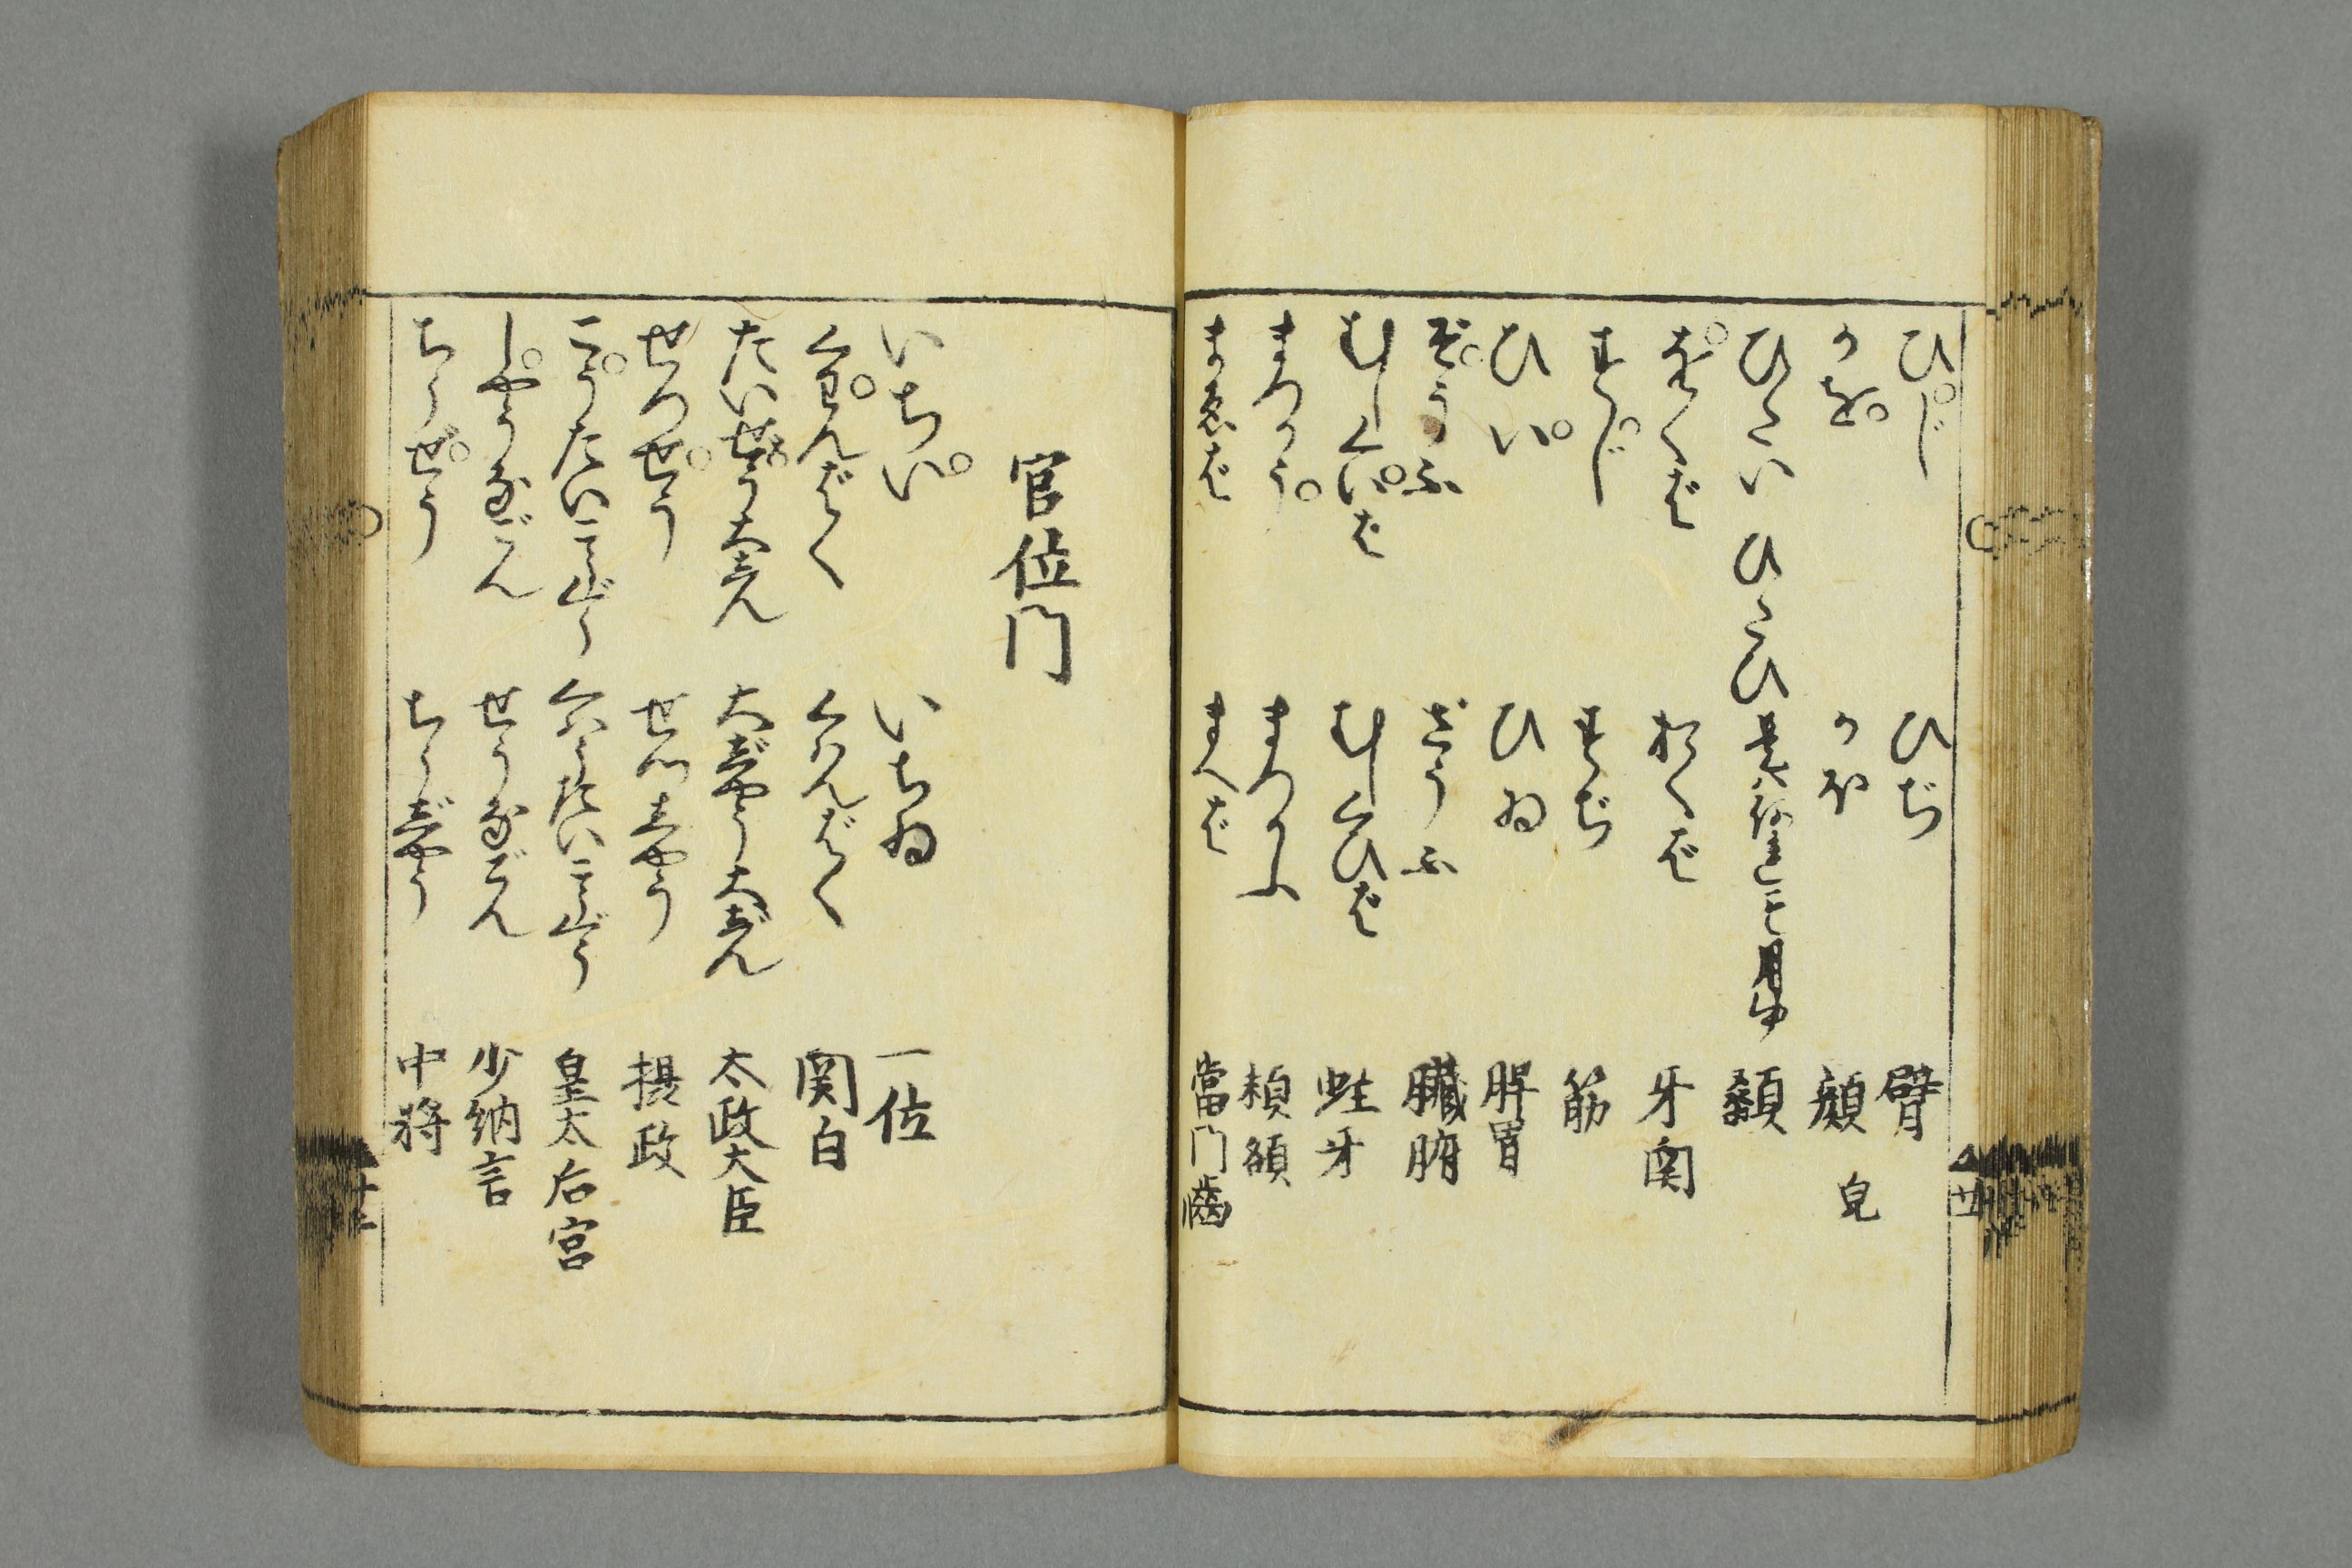 ひじ ひぢ 臂
かを かほ 顔 皃
ひたい ひたひ 顙
をくば おくば 牙関
すじ すぢ 筋
ひい ひゐ 脾胃
ぞうふ ざうふ 臓腑
むしくいば むしくひば 蛀牙
まつかう まつかふ
まゑば まへば 當門歯
廿
官位門
いちい いちゐ 一位
くわんばく くわんばく 関白
たいぜう大じん 大じやう大じん 太政大臣
せつせう せつしやう 摂政
こうたいこうぐう くわうたいこうぐう 皇太后宮
しやうなごん せうなごん 少納言
ちうぜう ちうじやう 中将